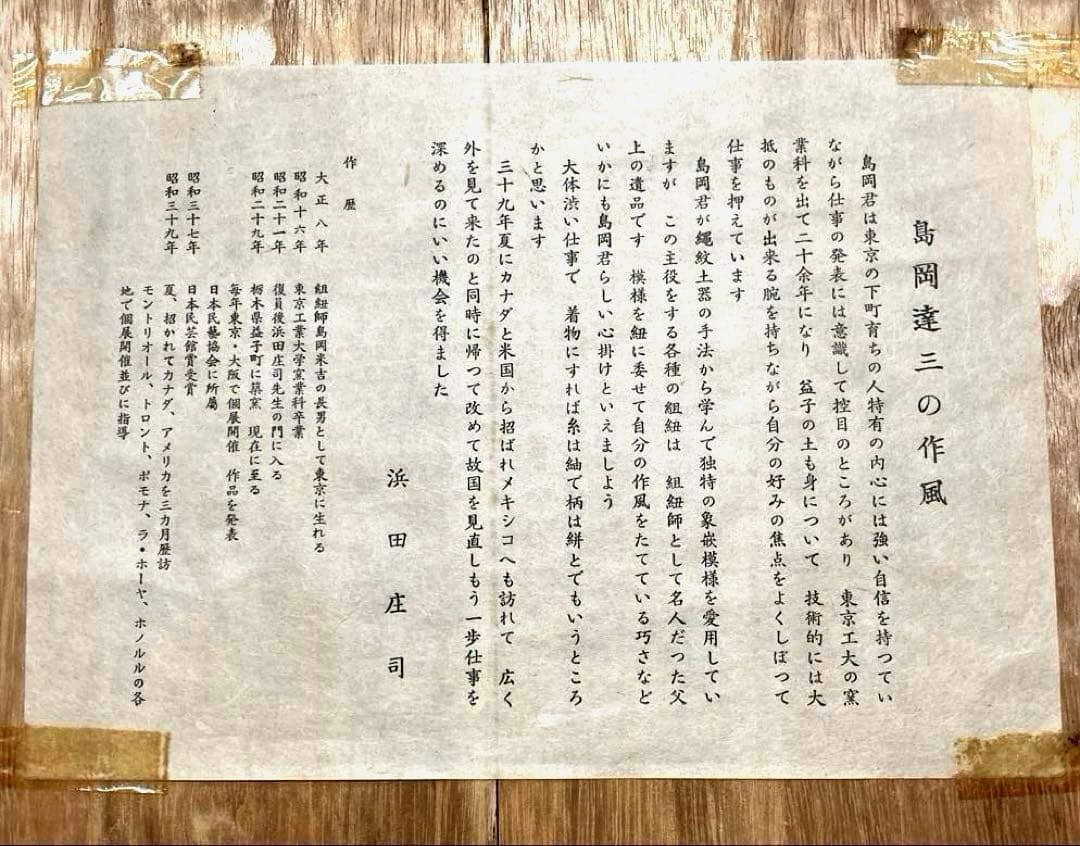 島岡達三の作風
島岡君は東京の下町育ちの人特有の内心には強い自信を持つてい
ながら仕事の発表には意識して控目のところがあり　東京工大の窯
業科を出て二十余年になり　益子の土も身について　技術的には大
抵のものが出来る腕を持ちながら自分の好みの焦点をよくしぼつて
仕事を押えています
島岡君が縄紋土器の手法から学んで独特の象嵌模様を愛用してい
ますが　この主役をする各種の組紐は　組紐師として名人だつた父
上の遺品です　模様を紐に委せて自分の作風をたてている巧さなど
いかにも島岡君らしい心掛けといえましよう
大体渋い仕事で　着物にすれば糸は紬で柄は絣とでもいうところ
かと思います
三十九年夏にカナダと米国から招ばれメキシコへも訪れて　広く
外を見て来たのと同時に帰つて改めて故国を見直しもう一歩仕事を
深めるのにいい機会を得ました
浜田庄司
作歴
大正八年　組紐師島岡米吉の長男として東京に生れる
昭和十六年　東京工業大学窯業科卒業
昭和二十一年　復員後浜田庄司先生の門に入る
昭和二十九年　栃木県益子町に築窯　現在に至る
毎年東京・大阪で個展開催　作品を発表
日本民藝協会に所属
昭和三十七年　日本民芸館賞受賞
昭和三十九年　夏、招かれてカナダ、アメリカを三カ月歴訪
モントリオール、トロント、ポモナ、ラ・ホーヤ、ホノルルの各
地で個展開催並びに指導